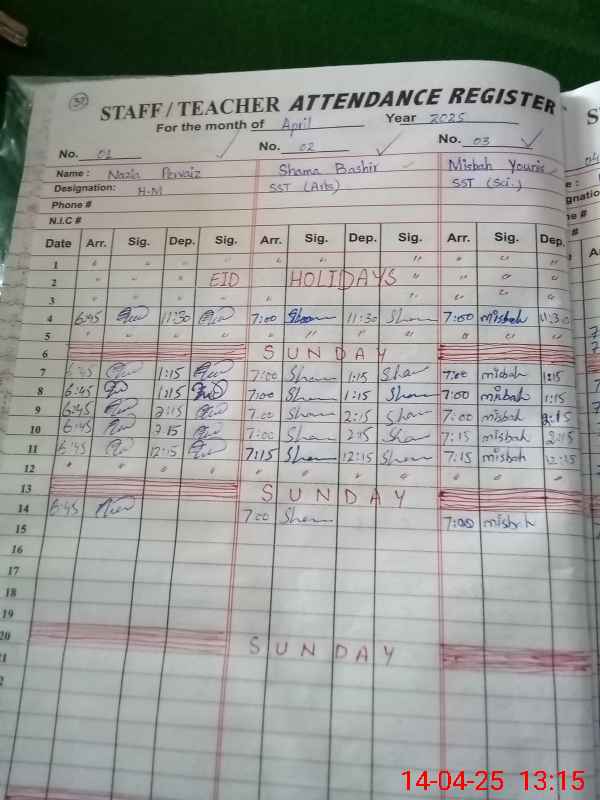 37
STAFF / TEACHER ATTENDANCE REGISTER
For the month of April Year 2025
No. 01 No. 02 No. 03
Name : Nazia Pervaiz Shama Bashir Misbah Younis
Designation: H-M SST (Arts) SST (Sci.)
Phone #
N.I.C #
Date Arr. Sig. Dep. Sig. Arr. Sig. Dep. Sig. Arr. Sig. Dep.
1 " " " " " " " " " "
2 " " " EID HOLIDAYS " " " "
3 " " " " " " " "
4 6:45 11:30 7:00 Sham 11:30 Sham 7:00 misbah 11:30
5 " " " " " " " " " " "
6 SUNDAY
7 6:45 1:15 7:00 Sham 1:15 Sha 7:00 misbah 1:15
8 6:45 1:15 7:00 Sham 1:15 Sham 7:00 misbah 1:15
9 6:45 2:15 7:00 Sham 2:15 Sham 7:00 misbah 2:15
10 6:45 2:15 7:00 Sham 2:15 Sha 7:15 misbah 2:15
11 6:45 12:15 7:15 Sham 12:15 Sham 7:15 misbah 12:15
12 " " " " " " " " " " "
13 SUNDAY
14 6:45 7:00 Sham 7:00 misbah
15
16
17
18
19
20 SUNDAY
21
14-04-25 13:15